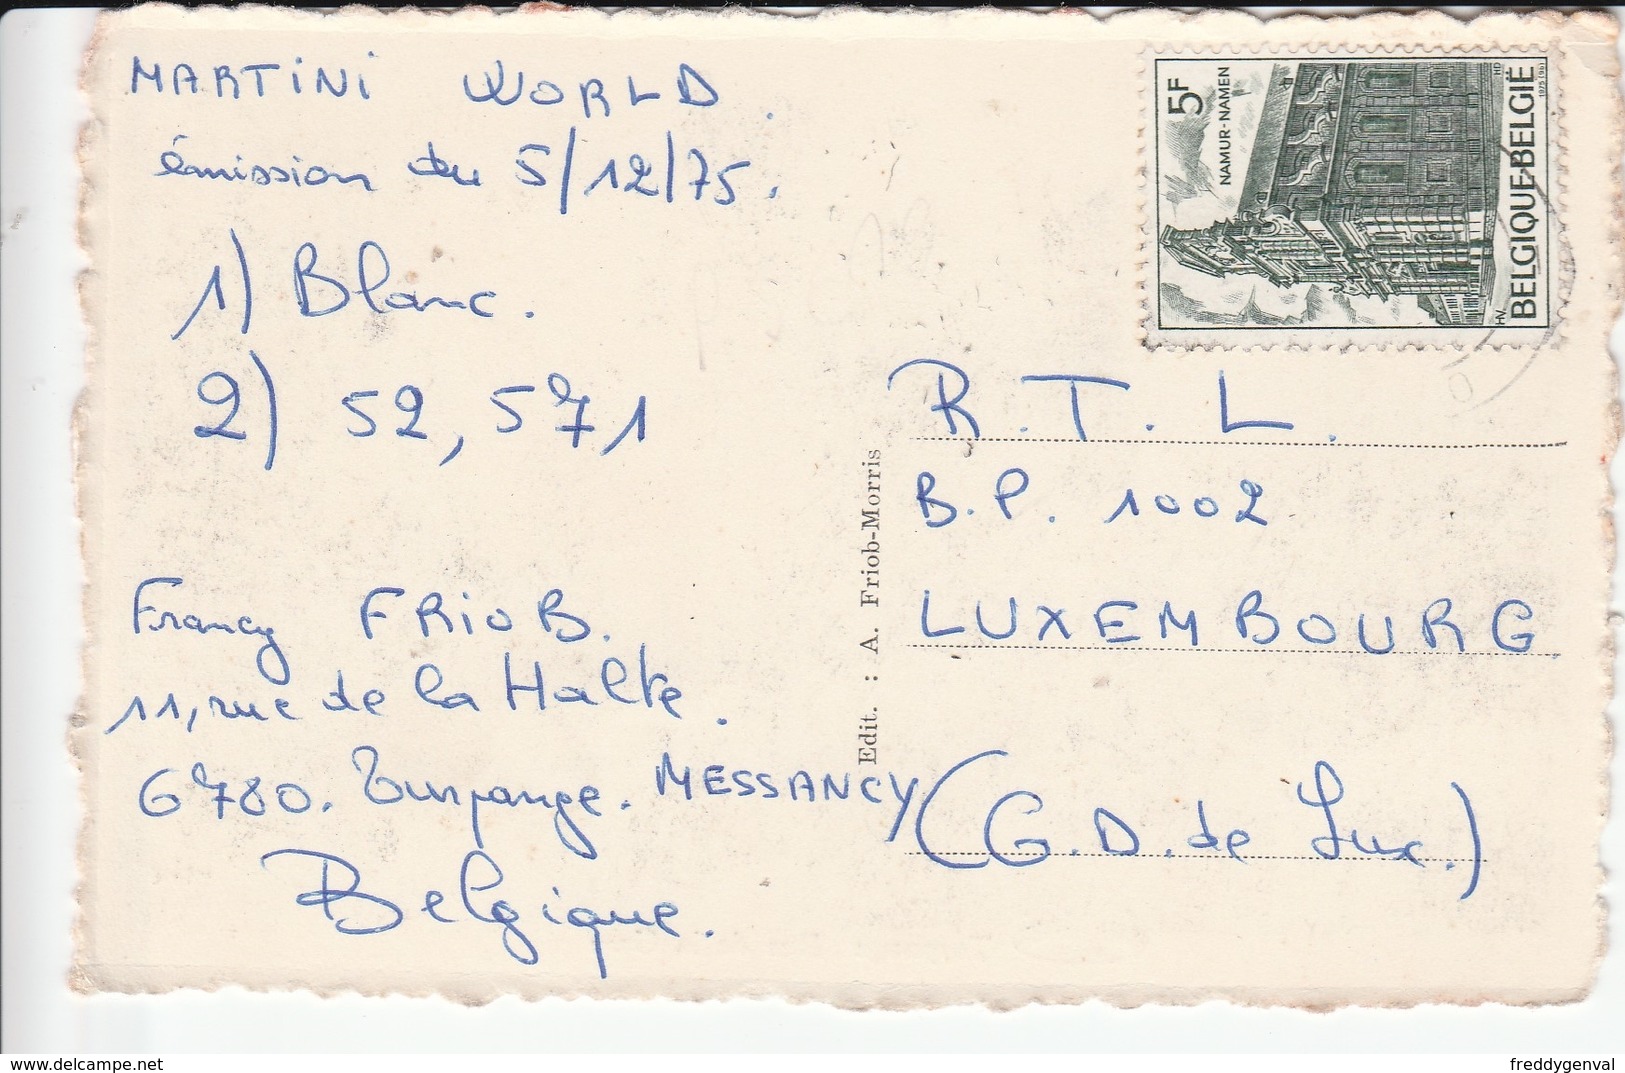 MARTiNi WORLD
émission du 5/12/75.
1) Blanc.
2) 52,571
Francy FRioB.
11, rue de la Halte.
6780. Turpange. MESSANCY
Belgique.
Edit. : A. Friob-Morris
5F
NAMUR-NAMEN
BELGIQUE-BELGIË
HV.
HD
1975 (96)
R.T.L.
B.P. 1002
LUXEMBOURG
(G.D. de Lux.)
www.delcampe.net
freddygenval